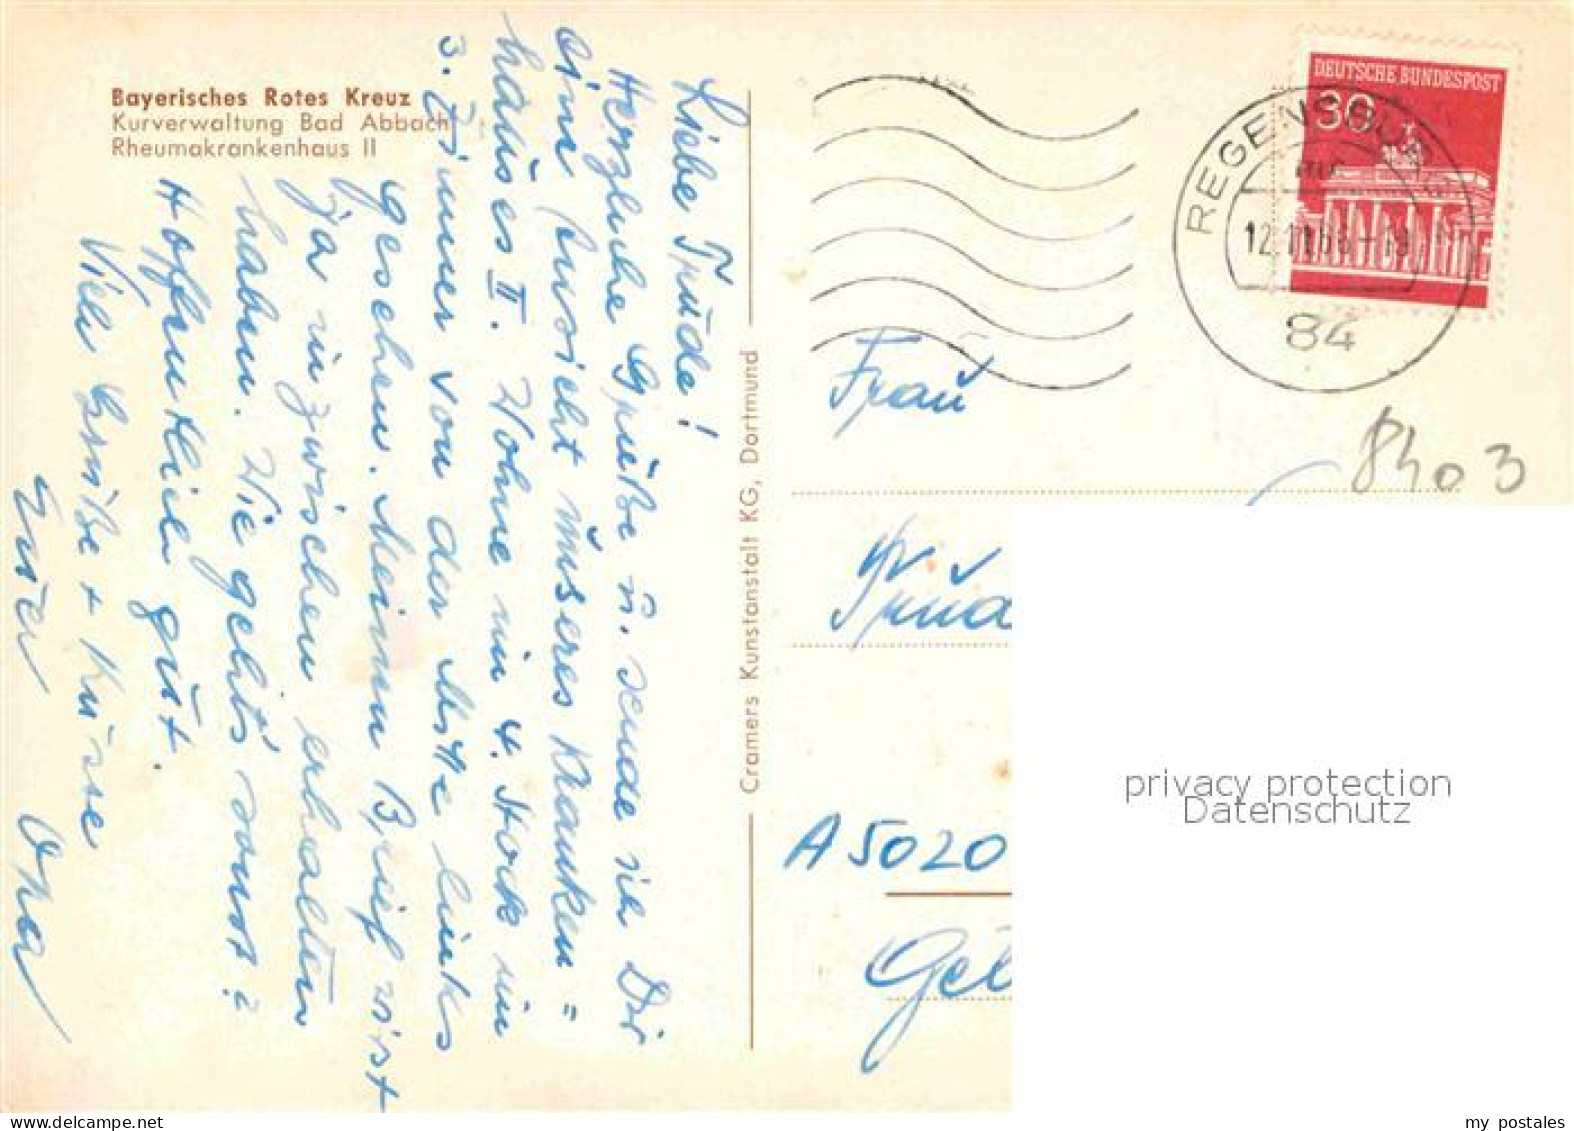 Bayerisches Rotes Kreuz
Kurverwaltung Bad Abbach
Rheumakrankenhaus II
Liebe Trude!
Herzliche Grüße u. sende ich Dir
eine Ansicht unseres Kranken=
hauses II. Wohne im 4. Stock im
3. Zimmer von der Mitte links
gesehen. Meinen Brief wirst
ja inzwischen erhalten
haben. Wie geht's sonst?
Hoffentlich gut.
Viele Grüße + Küsse
Oma
Cramers Kunstanstalt KG, Dortmund
DEUTSCHE BUNDESPOST
30
REGENSBURG
84
Frau
8403
A 5020
Gel
privacy protection
Datenschutz
my postales